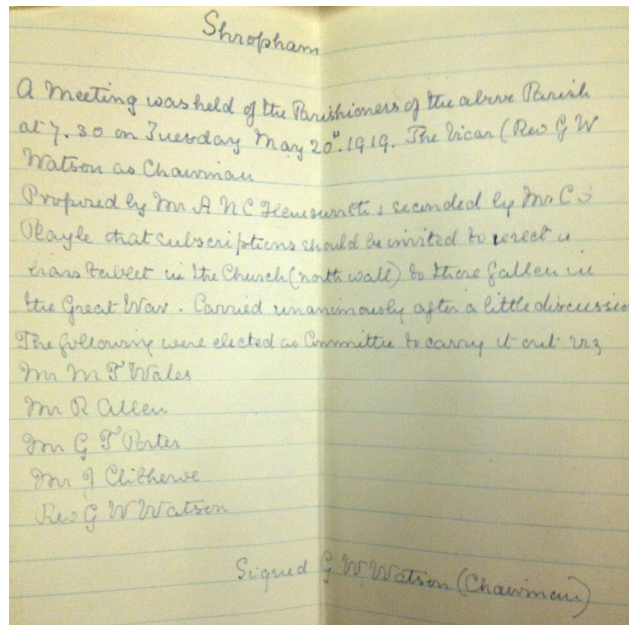 Shropham
A Meeting was held of the Parishioners of the above Parish
at 7.30 on Tuesday May 20th. 1919. The Vicar (Rev G W
Watson as Chairman
Proposed by Mr A N C & seconded by Mr C
Playle that subscriptions should be invited to erect a
brass tablet in the Church (north wall) to those fallen in
the Great War. Carried unanimously after a little discussio
The following were elected as Committee to carry it out viz
Mr M F Wales
Mr R Allen
Mr G F Porter
Mr J Clitherve
Rev G W Watson
Signed G W Watson (Chairman)